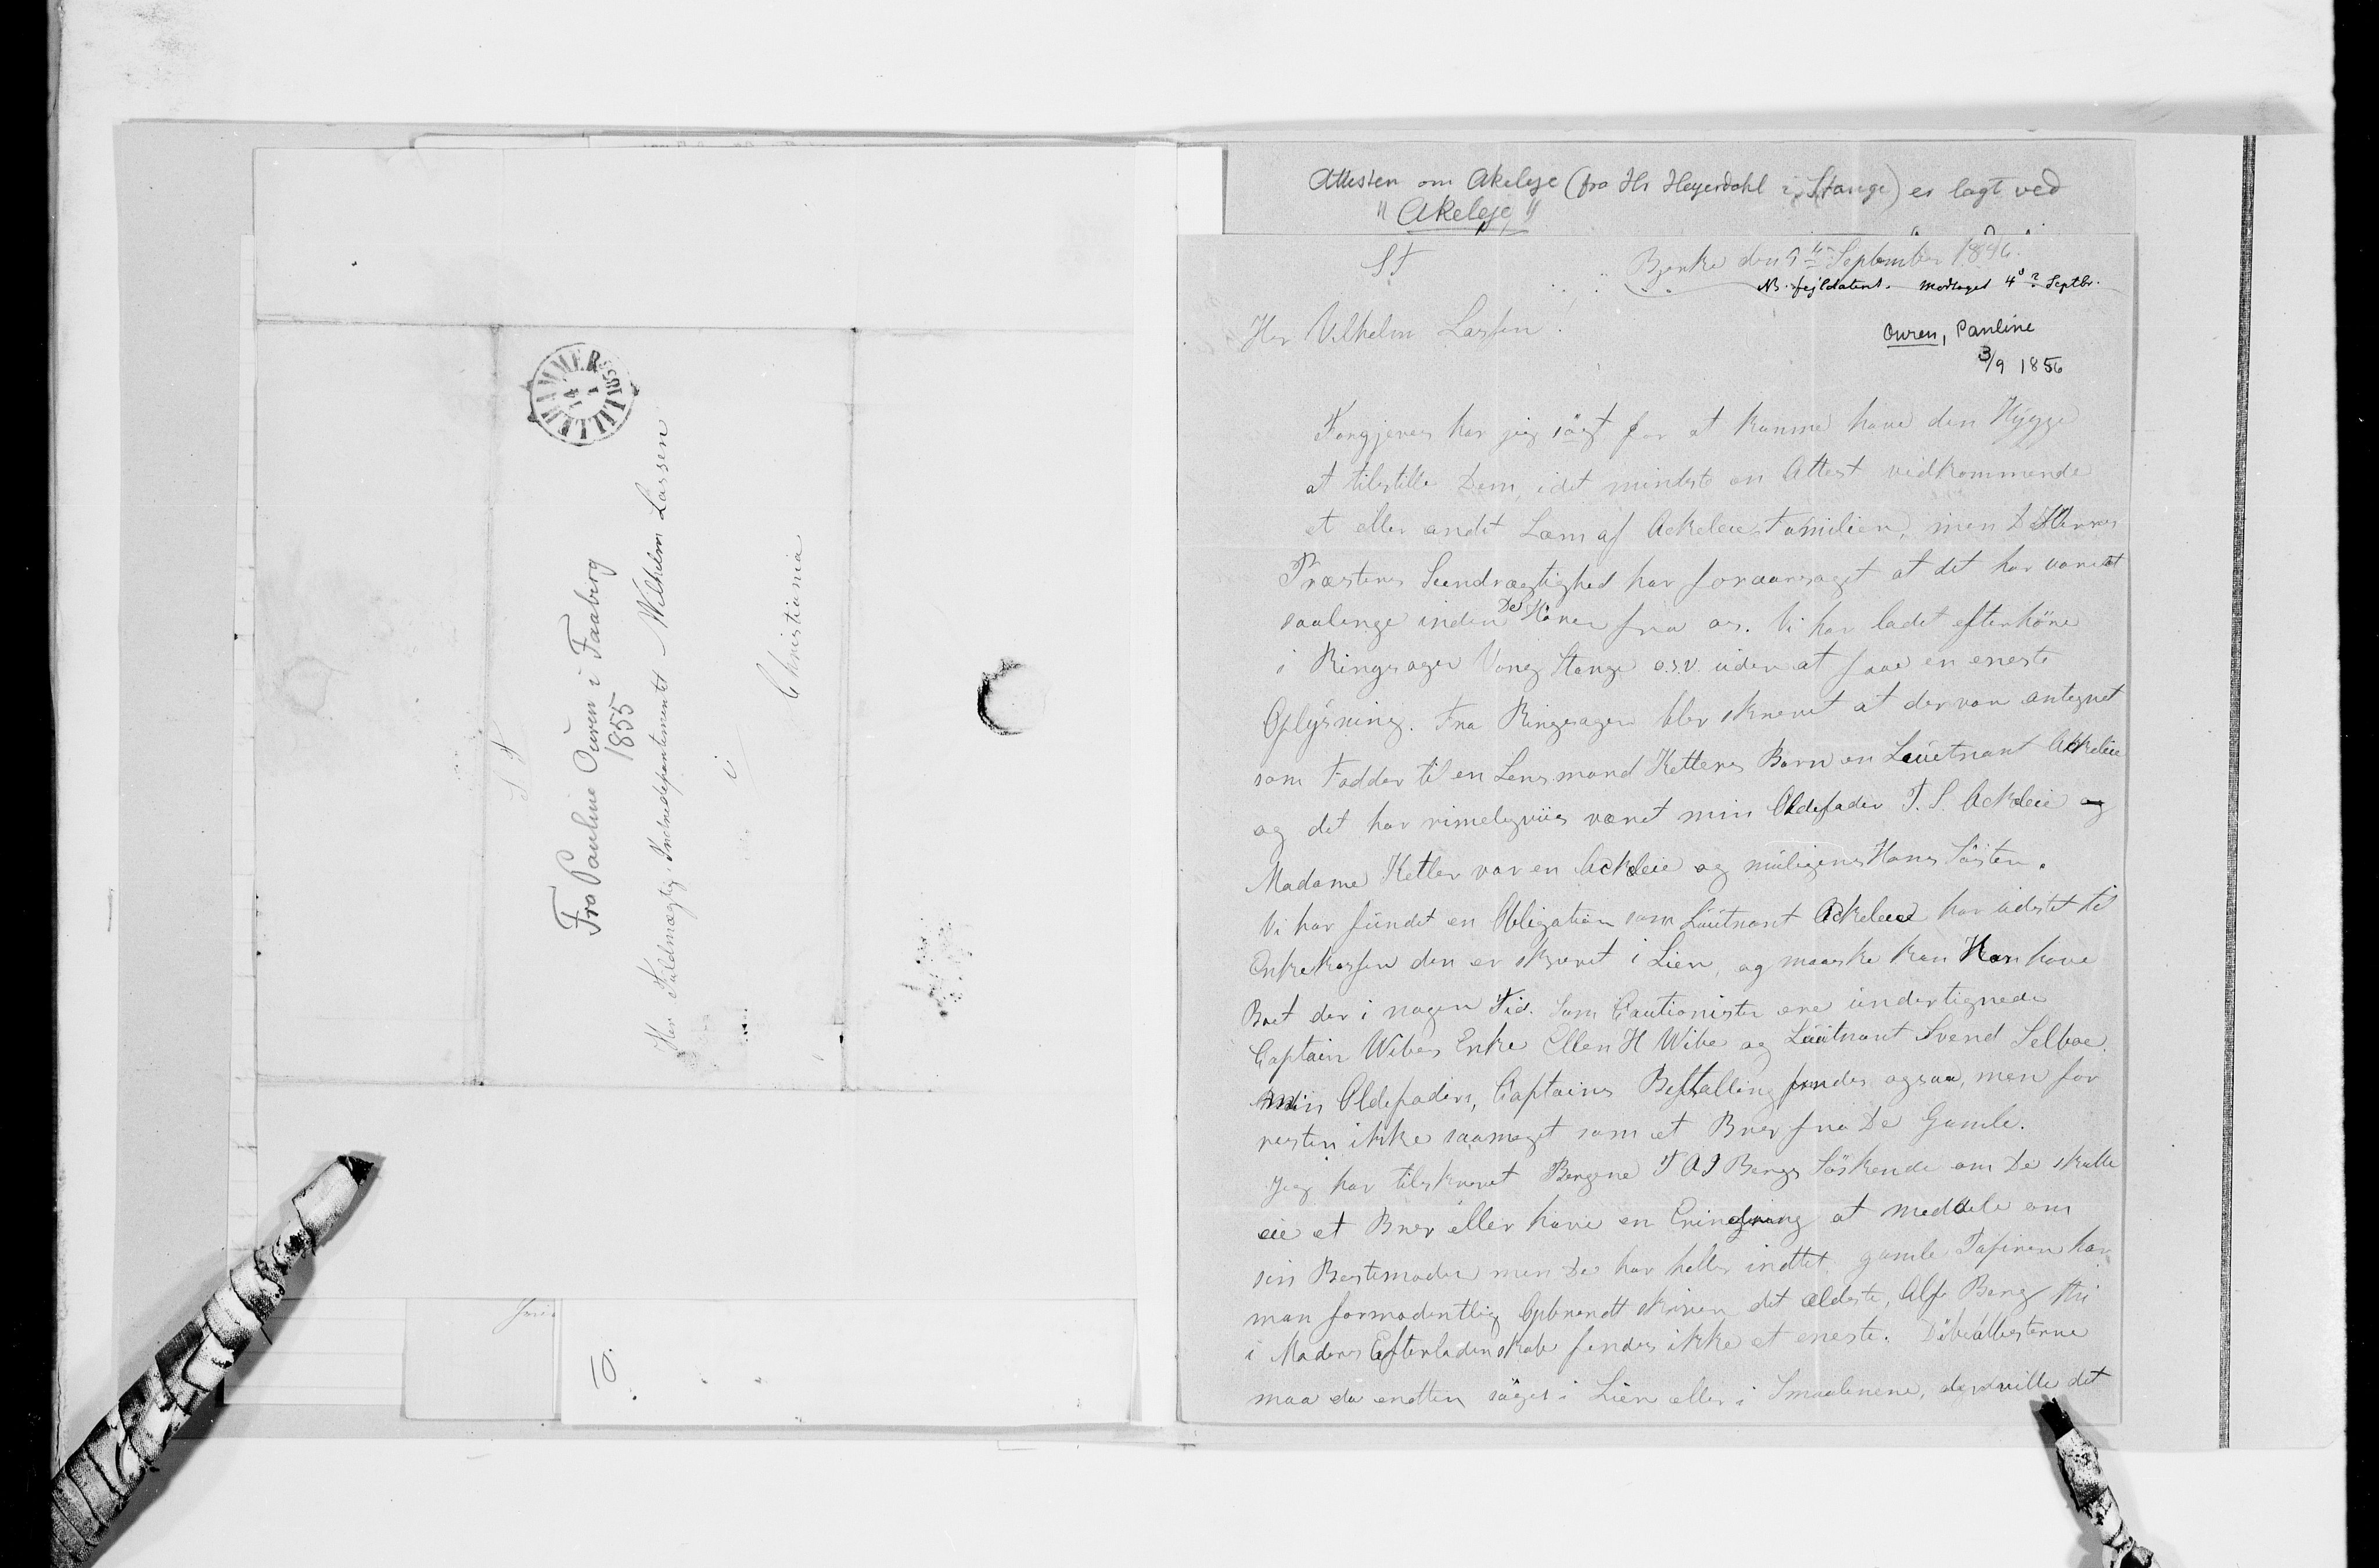 LILLEHAMMER
14
1
1855
S T
Fra Pauline Ouren i Faaberg
1855
Herr Fuldmægtig i Indredepartementet Wilhelm Lassen
i
Christiania
Attesten om Akeleje (fra Hr Heyerdahl i Stange) er lagt ved
"Akeleje"
ST
Bjerke den September 1856.
NB. fejldateret. modtaget 4de? Septbr.
Herr Vilhelm Lassen.
Ouren, Pauline
3/9 1856
Forgjæves har jeg søgt for at kunne have den Hygge
at tilstille Dem, idet mindste en Attest vedkommende
et eller andet Lem af Ackeleie Familien, men D Herrer
Præsters Seendrægtighed har foraarsaget at det har varet
saalenge inden De Hører fra os. Vi har ladet efterhöre
i Ringsager Vang Stange o.s.v. uden at faae en eneste
Oplysning. Fra Ringsager blev skrevet at der var antegnet
som Fadder til en Lensmand Ketlers Barn en Leuetnant Akeleie
og det har rimeligviis været min Oldefader T. S. Ackeleie og
Madame Ketler var en Ackeleie og muligens Hans Söster.
Vi har fundet en Obligation som Lautnant Ackeleie har udstet til
Enkekassen den er skrevet i Lier, og maaske kan Han have
Boet der i nogen Tid. Som Cautionister ere undertegnede
Captain Wibes Enke Ellen H Wibe og Lautnant Svend Selboe.
Min Oldefaders, Captains Bestalling findes ogsaa, men for
resten ikke saameget som et Brev fra De Gamle.
Jeg har tilskrevet Bergene T A J Bergs Söskende om De skulle
eie et Brev eller have en Erindring at meddele om
sin Bestemoder men De har heller indtet. gamle Papirer har
man formodentlig Opbrendt skriver det ældste, Alf Berg thi
i Moders Efterladenskab findes ikke et eneste. Döbeattesterne
maa da endten söges i Lier eller i Smaalenene, det ville det